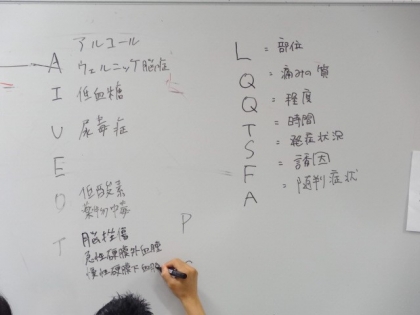 アルコール
A ウェルニッケ脳症
I 低血糖
U 尿毒症
E
O 低酸素
薬物中毒
T 脳挫傷
急性硬膜外血腫
慢性硬膜下血腫
P
L = 部位
Q = 痛みの質
Q = 程度
T = 時間
S = 発症状況
F = 誘因
A = 随伴症状